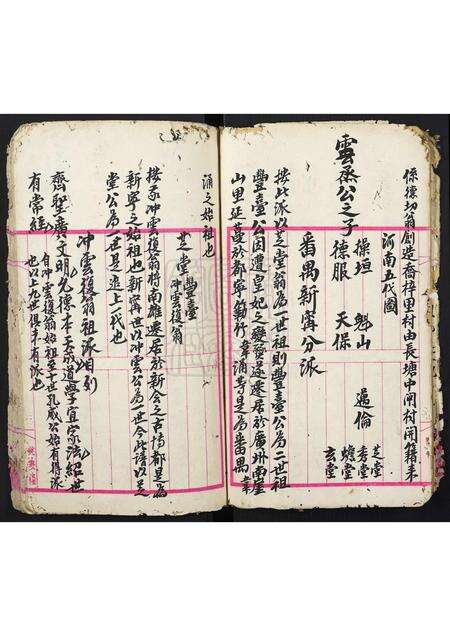 係德初翁創造喬梓里村由長塘中閘村開籍來
河南五代圖
雲丞公之子
操垣 魁山
德服 天保
邁倫
芝堂
秀堂
蟾堂
玄堂
番禺新甯分派
按此派以芝堂翁為一世祖則豐臺公為二世祖
豐臺公因遭皇妃之變遷居於廣州南崖
山里延蔓於都寧簕竹韋涌考是為番禺韋
涌之始祖也
芝堂 豐臺
冲雲復翁
按承冲雲復翁將南雄遷居於新會之古博都是為
新寧之始祖也新寧世以冲雲公為一世今此譜以芝
堂公為一世是追上一代也
冲雲復翁祖派相列
齊聖廣文明允德本天承道學宜家法紹世
有常經
自冲雲復翁始祖至十世孔威公始有得派
也以上九世俱未有派也